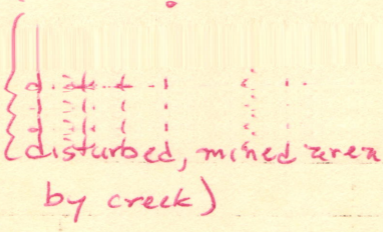 (disturbed, mined area
by creek)